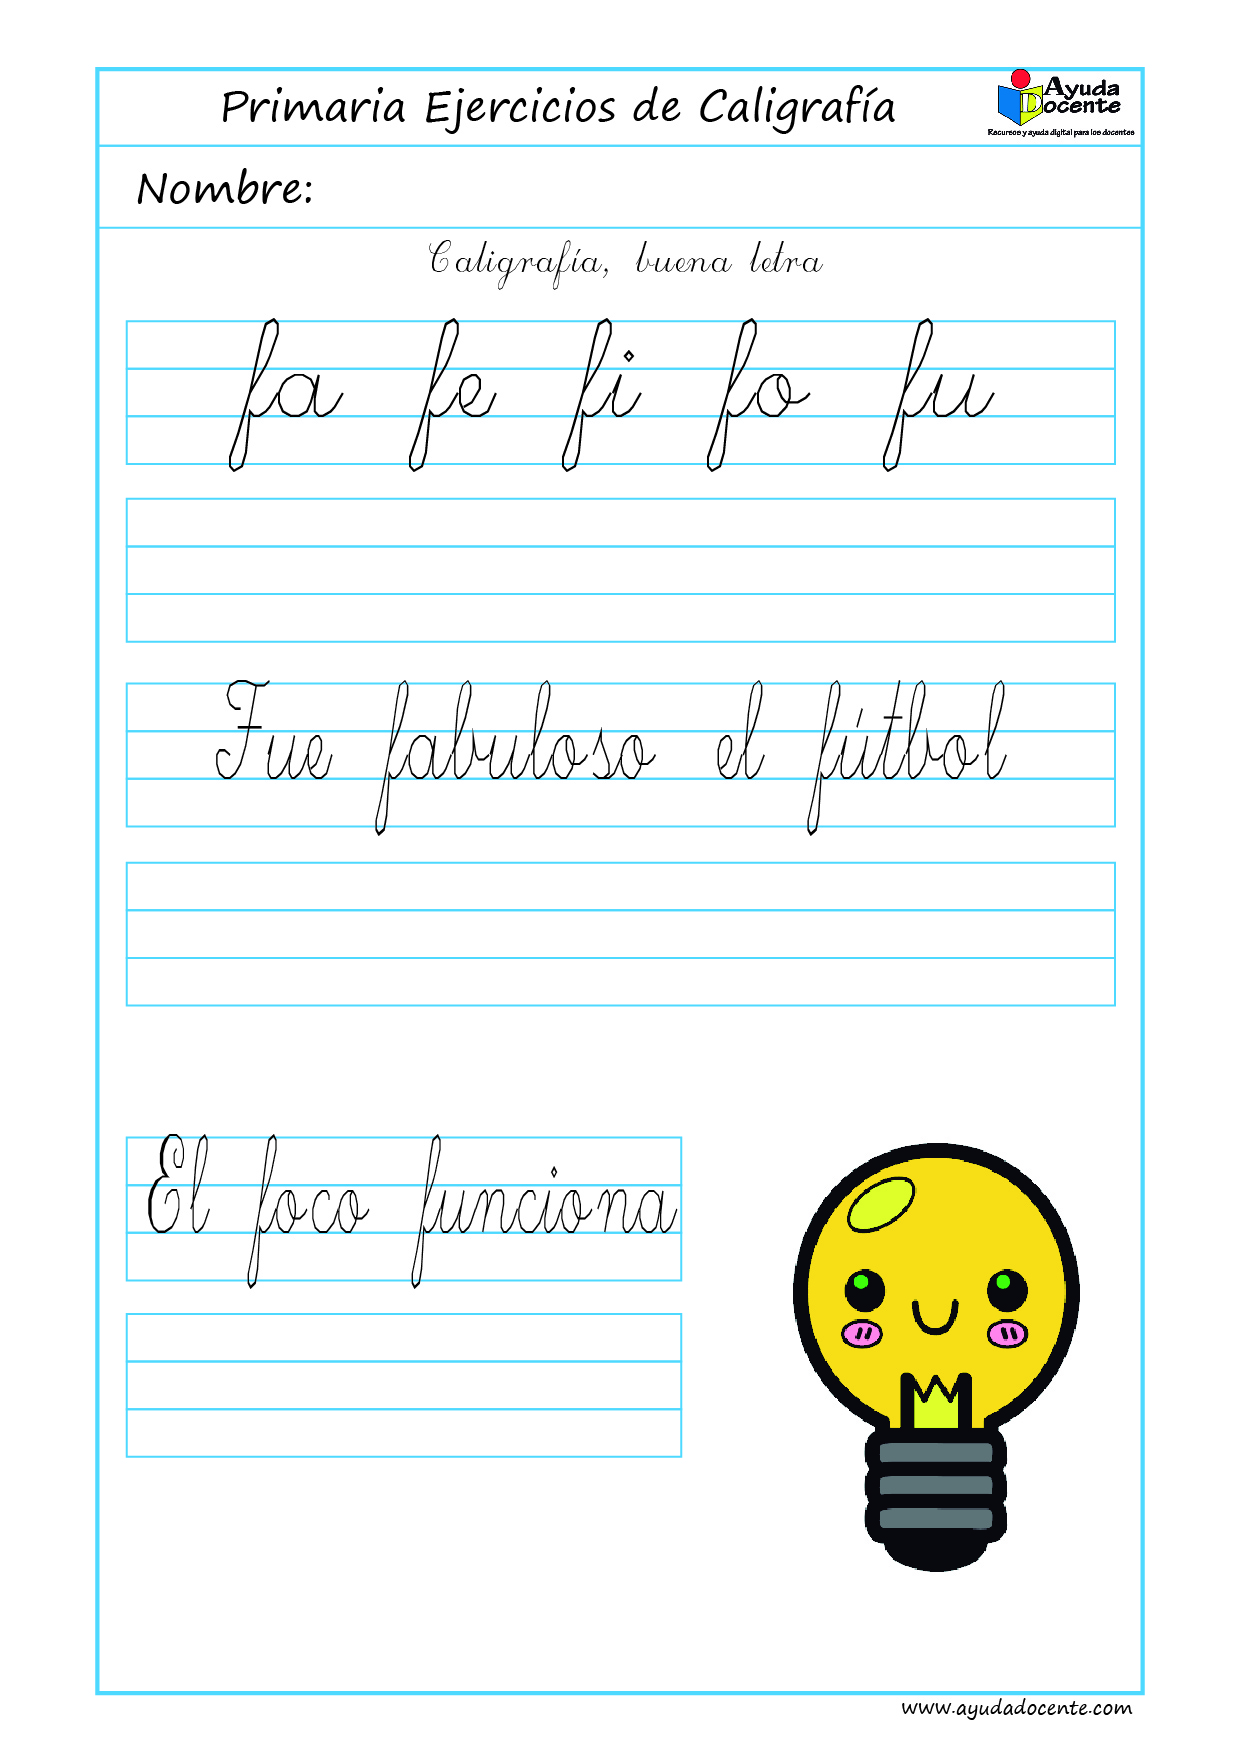 Primaria Ejercicios de Caligrafía
Ayuda
Docente
Recursos y ayuda digital para los docentes
Nombre:
Caligrafía, buena letra
fa fe fi fo fu
Fue fabuloso el fútbol
El foco funciona
www.ayudadocente.com